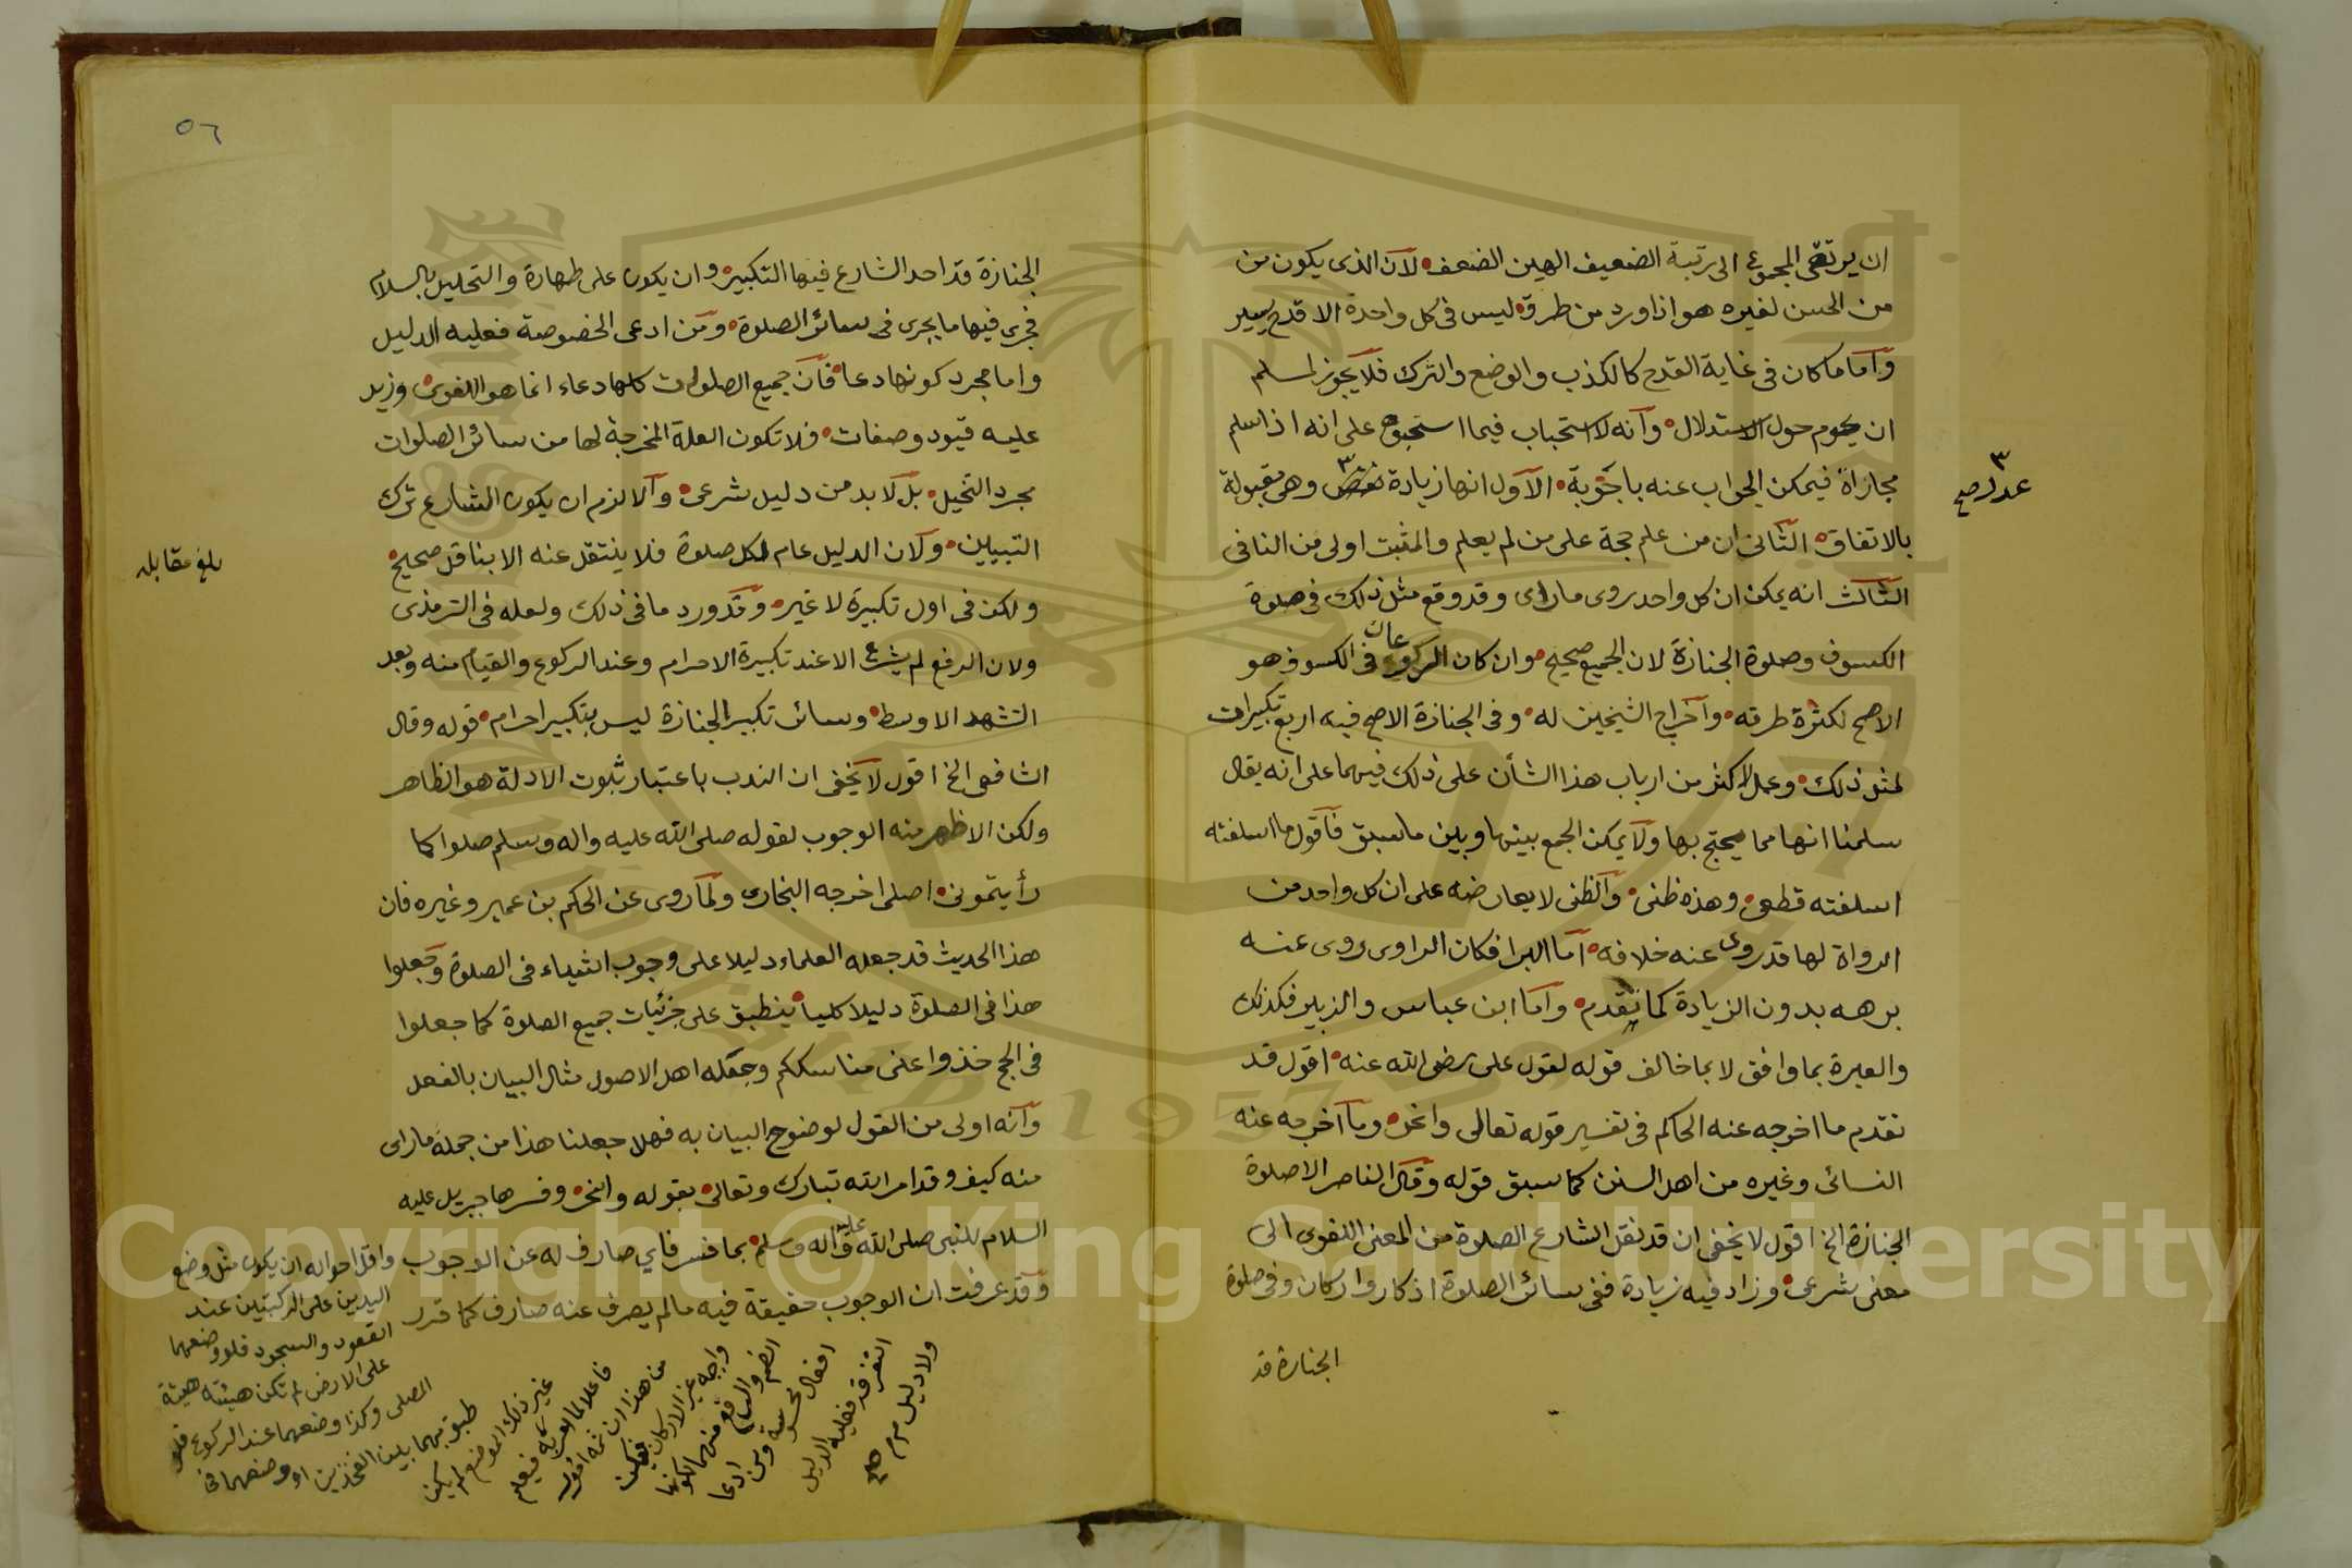 ان يرتقى المجموع الى رتبة الضعيف الهين الضعف لان الذى يكون من
من الحسن لغيره هو اذا ورد من طرق ليس فى كل واحدة الا قدح يسير
وأما ما كان فى غاية القدح كالكذب والوضع والترك فلا يجوز لمسلم
ان يحوم حول الاستدلال وانه لا استحباب فيما على انه اذا سلم
مجازاة فيمكن الجواب عنه باجوبة الاول انها زيادة وهى مقبولة
عدل صح
بالاتفاق الثانى ان من علم حجة على من لم يعلم والمثبت اولى من النافى
الثالث انه يمكن ان كل واحد روى ما راى وقد وقع مثل ذلك فى صلوة
الكسوف وصلوة الجنازة لان الجميع صحيح وان كان الركوعان فى الكسوف هو
الاصح لكثرة طرقه واخراج الشيخين له وفى الجنازة الاصح فيه اربع تكبيرات
لمثل ذلك وعمل الاكثر من ارباب هذا الشأن على ذلك فيهما على انه يقال
سلمنا انها مما يحتج بها ولا يمكن الجمع بينها وبين ما سبق فاقول ما اسلفته
اسلفته قطعى وهذه ظنى والظنى لا يعارضه على ان كل واحد من
الرواة لها قد روى عنه خلافه اما البرا فكان الراوى روى عنه
برهه بدون الزيادة كما تقدم واما ابن عباس والزبير فكذلك
والعبرة بما وافق لا بما خالف قوله لقول على رضى الله عنه اقول قد
تقدم ما اخرجه عنه الحاكم فى تفسير قوله تعالى وانحر وما اخرجه عنه
النسائى وغيره من اهل السنن كما سبق قوله وقال الناصر الا صلوة
الجنازة الخ اقول لا يخفى ان قد نقل الشارع الصلوة من المعنى اللغوى الى
معنى شرعى وزاد فيه زيادة ففى سائر الصلوة اذكار واركان وفى صلوة
الجنازة قد
٥٦
الجنازة قد احد الشارع فيها التكبير وان يكون على طهارة والتحليل بالسلام
فجرى فيها ما يجرى فى سائر الصلوة ومن ادعى الخصوصة فعليه الدليل
واما مجرد كونها دعا فان جميع الصلوات كلها دعاء انما هو اللغوى وزيد
عليه قيود وصفات فلا تكون العلة المخرجة لها من سائر الصلوات
مجرد التخيل بل لا بد من دليل شرعى والا لزم ان يكون الشارع ترك
التبيين ولان الدليل عام لكل صلوة فلا ينتقل عنه الا بناقل صحيح
بلغ مقابله
ولكن فى اول تكبيرة لا غير وقد ورد ما فى ذلك ولعله فى الترمذى
ولان الرفع لم يشرع الا عند تكبيرة الاحرام وعند الركوع والقيام منه وبعد
التشهد الاوسط وسائر تكبير الجنازة ليس بتكبير احرام قوله وقال
الشافعى الخ اقول لا يخفى ان الندب باعتبار ثبوت الادلة هو الظاهر
ولكن الاظهر منه الوجوب لقوله صلى الله عليه واله وسلم صلوا كما
رأيتمونى اصلى اخرجه البخارى ولما روى عن الحكم بن عمير وغيره فان
هذا الحديث قد جعله العلماء دليلا على وجوب اشياء فى الصلوة وجعلوا
هذا فى الصلوة دليلا كليا ينطبق على جزئيات جميع الصلوة كما جعلوا
فى الحج خذوا عنى مناسككم وجعله اهل الاصول مثال البيان بالفعل
وانه اولى من القول لوضوح البيان به فهلا جعلنا هذا من جملة ما راى
منه كيف وقد امر الله تبارك وتعالى بقوله وانحر وفسرها جبريل عليه
السلام للنبى صلى الله عليه واله وسلم بما فسر فاي صارف له عن الوجوب
وقد عرفت ان الوجوب حقيقة فيه ما لم يصرف عنه صارف كما قرر
واقل احواله ان يكون مثل وضع
اليدين على الركبتين عند
القعود والسجود فلو وضعهما
على الارض لم تكن هيئته هيئة
المصلى وكذا وضعهما عند الركوع فلو
طبق بهما بين الفخذين او وضعهما فى
غير ذلك الموضع لم يكن
فاعلا لما امر به فيعلم
من هذا ان ثمه امور
واجبه غير الاركان
الضم والرفع منهما لكونها
افعال محسوسة ومن ادعا
التفرقه فعليه الدليل
ولا دليل صح